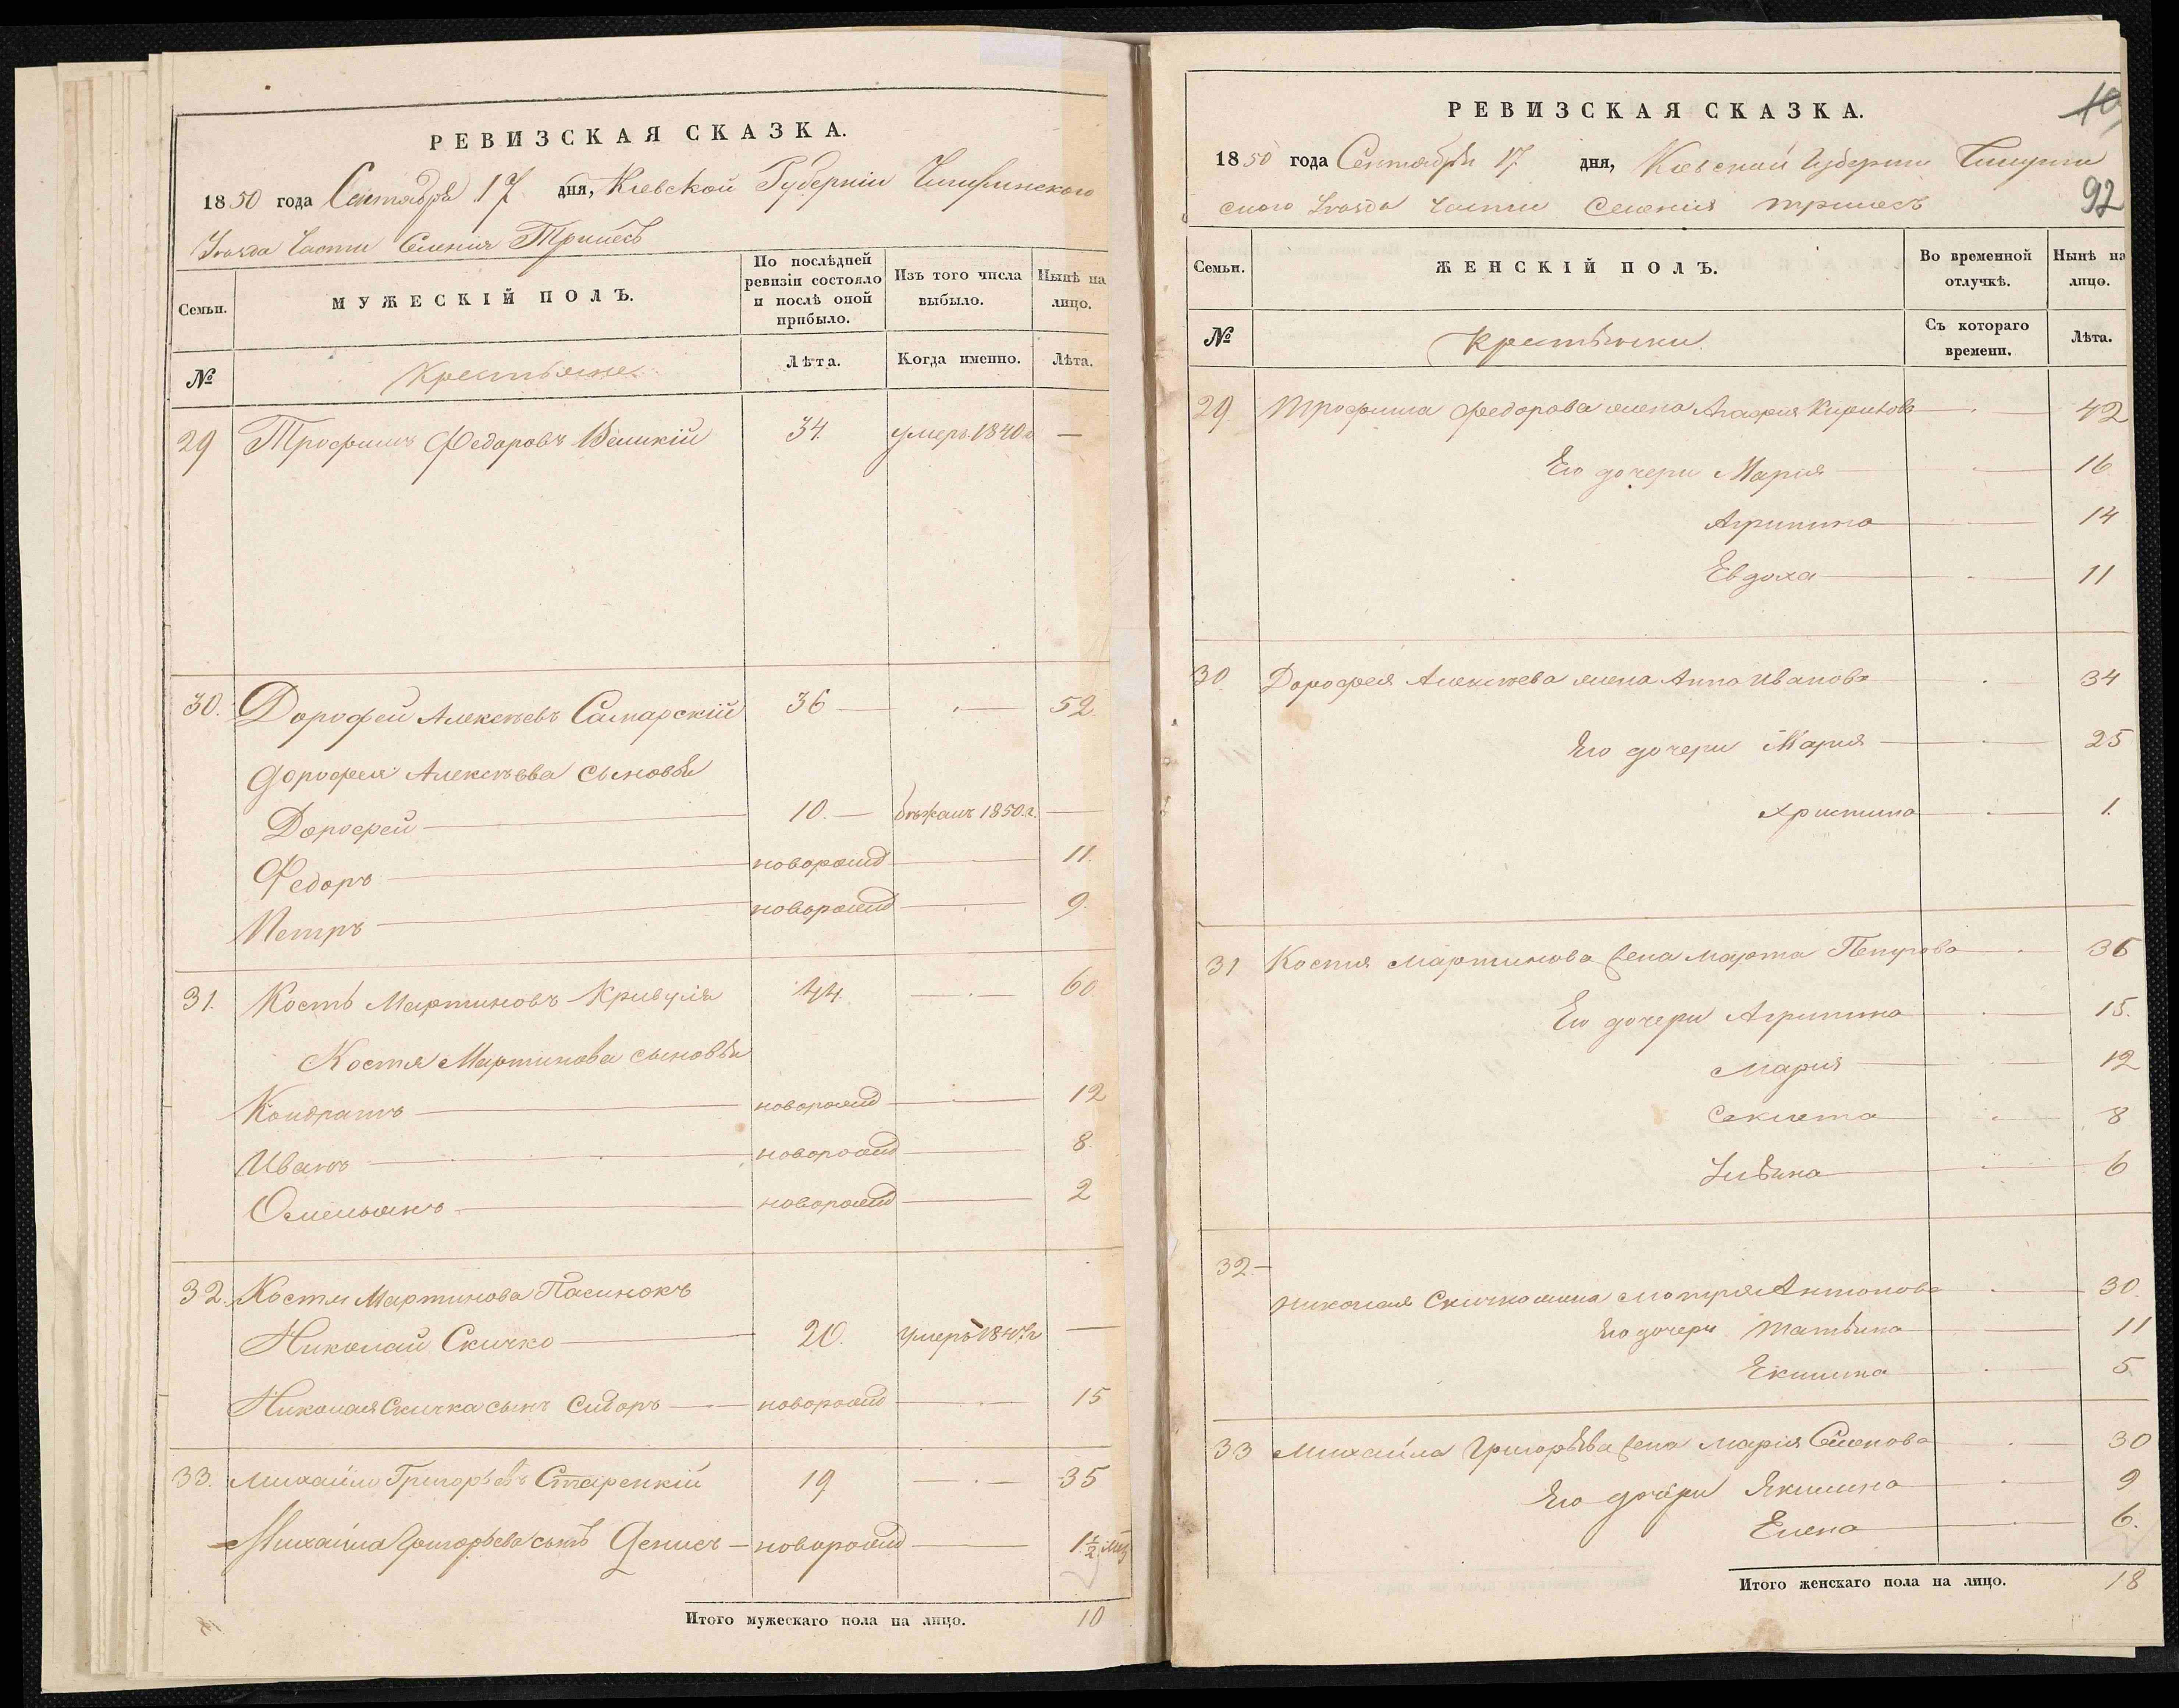 РЕВИЗСКАЯ СКАЗКА.
1850 года Сентября 17 дня, Кіевской Губерніи Чигиринского
Уезда Части Селенія Трилесъ
Семьи. МУЖЕСКІЙ ПОЛЪ. По послѣдней ревизіи состояло и послѣ оной прибыло. Изъ того числа выбыло. Нынѣ на лицо.
№ Крестьяне Лѣта. Когда именно. Лѣта.
29 Трофимъ Федоровъ Великій 34. умеръ 1840 —
30. Дорофей Алексѣевъ Самарскій 36 — — 52.
Дорофея Алексѣева сыновья
Дорофей — 10. — бѣжалъ 1850.г. —
Федоръ — новорожд — 11.
Петръ — новорожд — 9.
31. Кость Мартиновъ Кривуля 44. — 60
Костя Мартинова сыновья
Кондратъ — новорожд — 12
Иванъ — новорожд — 8.
Омельянъ — новорожд — 2
32. Костя Мартинова Пасинокъ
Николай Скичко — 20. умеръ —
Николая Скичка сынъ Сидоръ — новорожд — 15
33. Михайло Григорьевъ Старенкій 19 — 35
Михайла Григорьева сынъ Денисъ — новорожд — 1½ мѣ
Итого мужескаго пола на лицо. 10
РЕВИЗСКАЯ СКАЗКА.
1850 года Сентября 17 дня, Кіевской Губерніи Чигирин
ского Уезда Части Селенія Трилесъ
92
Семьи. ЖЕНСКІЙ ПОЛЪ. Во временной отлучкѣ. Нынѣ на лицо.
№ Крестьянки Съ котораго времени. Лѣта.
29 Трофима Федорова жена Агафія Кирилова — 42
Его дочери Марія — 16
Агрипина — 14
Евдоха — 11
30. Дорофея Алексѣева жена Анна Иванова — 34
Его дочери Марія — 25
Христина — 1.
31 Костя Мартинова жена Марта Петрова — 36
Его дочери Агрипина — 15.
Марія — 12
Секлета — 8
— 6
32. —
Николая Скичка жена Мотря Антонова — 30.
Его дочери Татьяна — 11
Екилина — 5
33 Михайла Григорьева жена Марія Семенова — 30
Его дочери Якилина — 9
Елена — 6.
Итого женскаго пола на лицо. 18